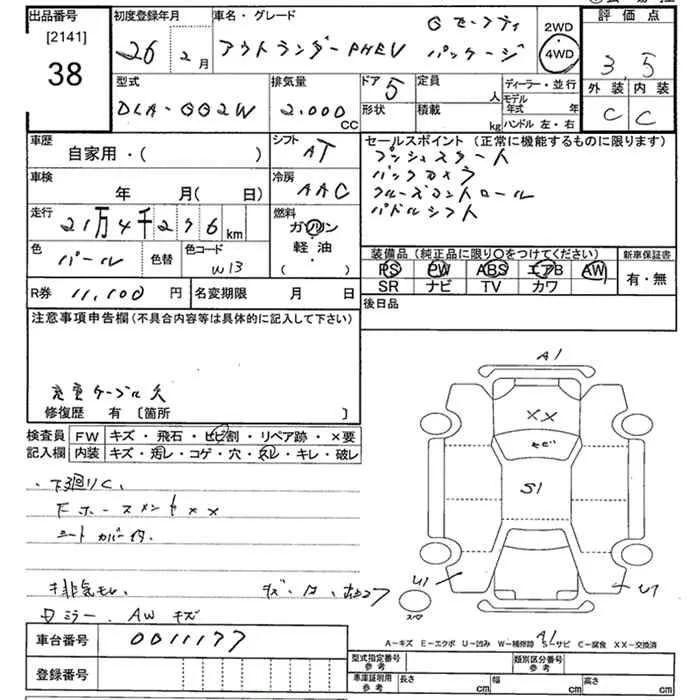 出品番号
[2141]
38
初度登録年月
26年 2月
車名・グレード
Gセーフティ
アウトランダーPHEV パッケージ
2WD
4WD
評価点
3.5
外装 内装
C C
型式
DLA-GG2W
排気量
2,000 CC
ドア 5
形状
定員 人
積載 kg
ディーラー・並行
モデル年式 年
ハンドル 左・右
車歴
自家用・( )
シフト
AT
車検
年 月( 日)
冷房
AAC
走行
21万4千276km
燃料
ガソリン
軽油
( )
色
パール
色替
色コード
W13
R券 11,100 円
名変期限 月 日
セールスポイント(正常に機能するものに限ります)
プッシュスタート
バックカメラ
クルーズコントロール
パドルシフト
装備品(純正品に限り〇をつけてください)
PS PW ABS エアB AW
SR ナビ TV カワ
新車保証書
有・無
後日品
注意事項申告欄(不具合内容等は具体的に記入して下さい)
充電ケーブル欠
修復歴 有 [箇所 ]
検査員記入欄
FW キズ・飛石・ヒビ割・リペア跡・×要
内装 キズ・汚レ・コゲ・穴・スレ・キレ・破レ
下廻りC、
シートカバー付.
排気モレ
ミラー. AW キズ
A1
XX
S1
U1
U1
A1
スペア
A-キズ E-エクボ U-凹み W-補修跡 S-サビ C-腐食 XX-交換済
車台番号 0011177
登録番号
型式指定番号 参考
類別区分番号 参考
車庫証明用 参考
長さ cm
幅 cm
高さ cm